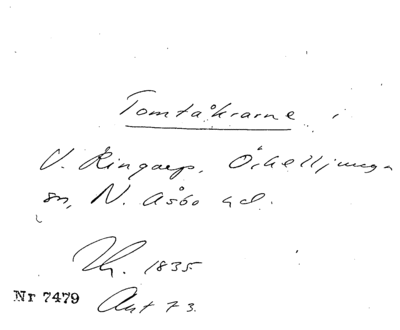 Tomtåkrarne i
V. Ringarp, Örkelljunga
sn, N. Åsbo hd.
Th. 1835
Nr 7479 Akt 73.